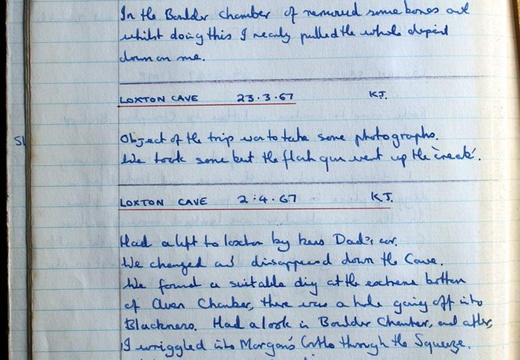 In the Boulder chamber I removed some bones and
whilst doing this I nearly pulled the whole deposit
down on me.
LOXTON CAVE 23.3.67 K.J.
Object of the trip was to take some photographs.
We took some but the flash gun went up the 'creek'.
LOXTON CAVE 2.4.67 K.J.
Had a lift to Loxton by Kens Dad's car.
We changed and disappeared down the Cave.
We found a suitable dig at the extreme bottom
of Aven Chamber, there was a hole going off into
Blackness. Had a look in Boulder Chamber, and after,
I wriggled into Morgan's Grotto through the Squeeze.